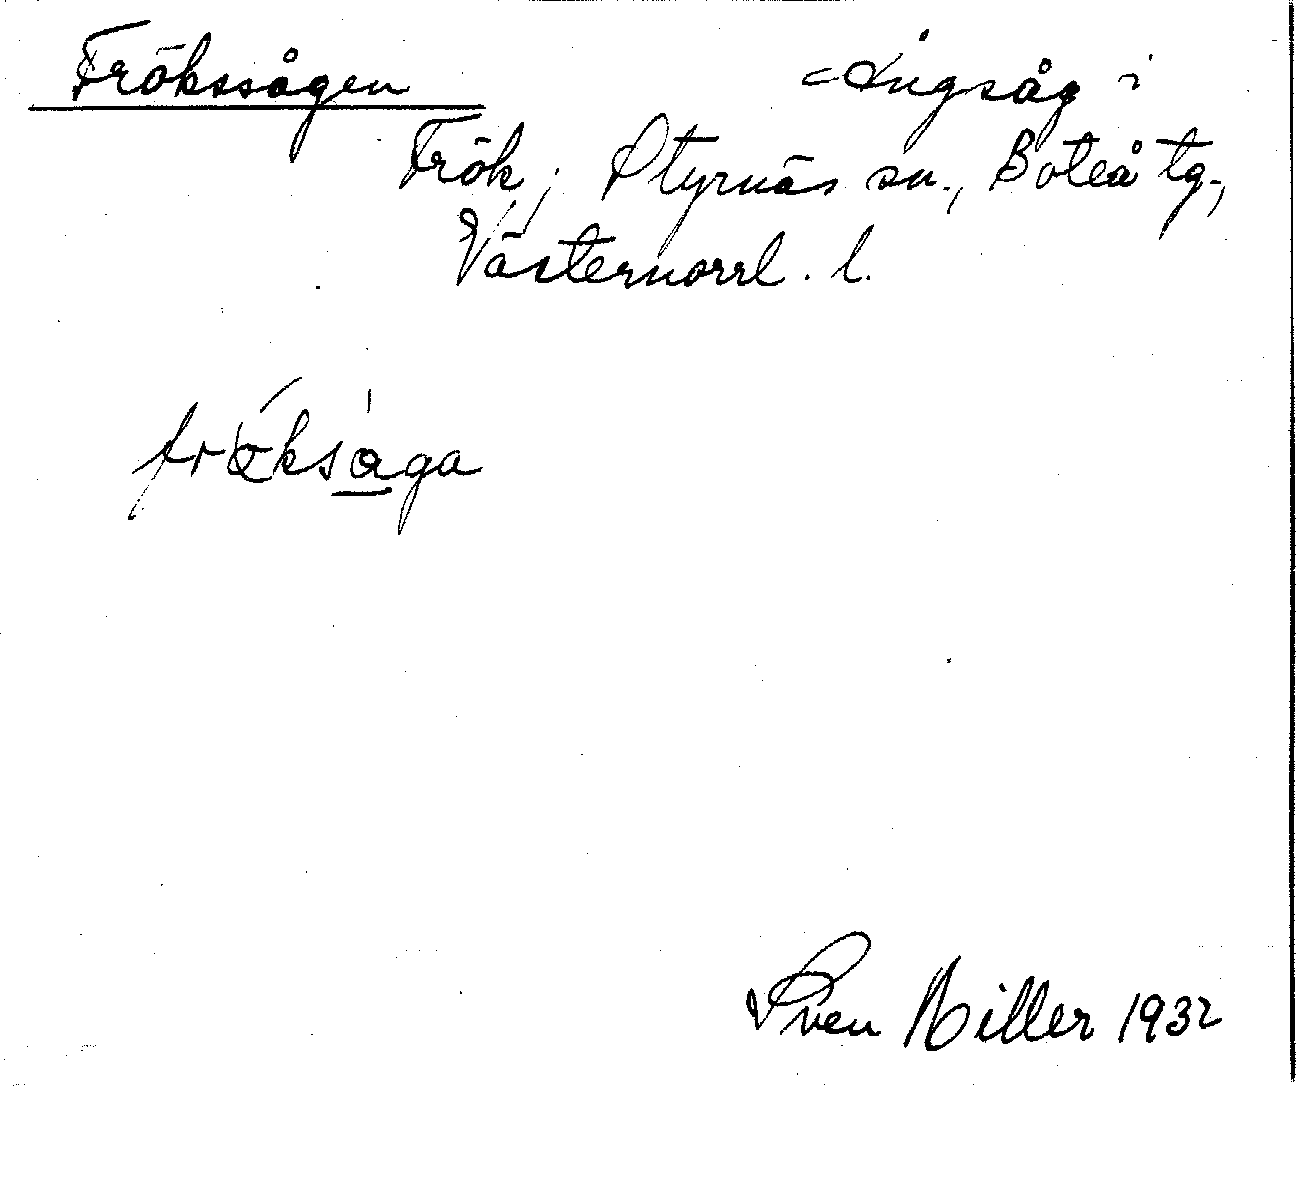 Frökssågen
Ångsåg i
Frök, Styrnäs sn., Boteå tg.,
Västernorrl. l.
fröksåga
Sven Hiller 1932